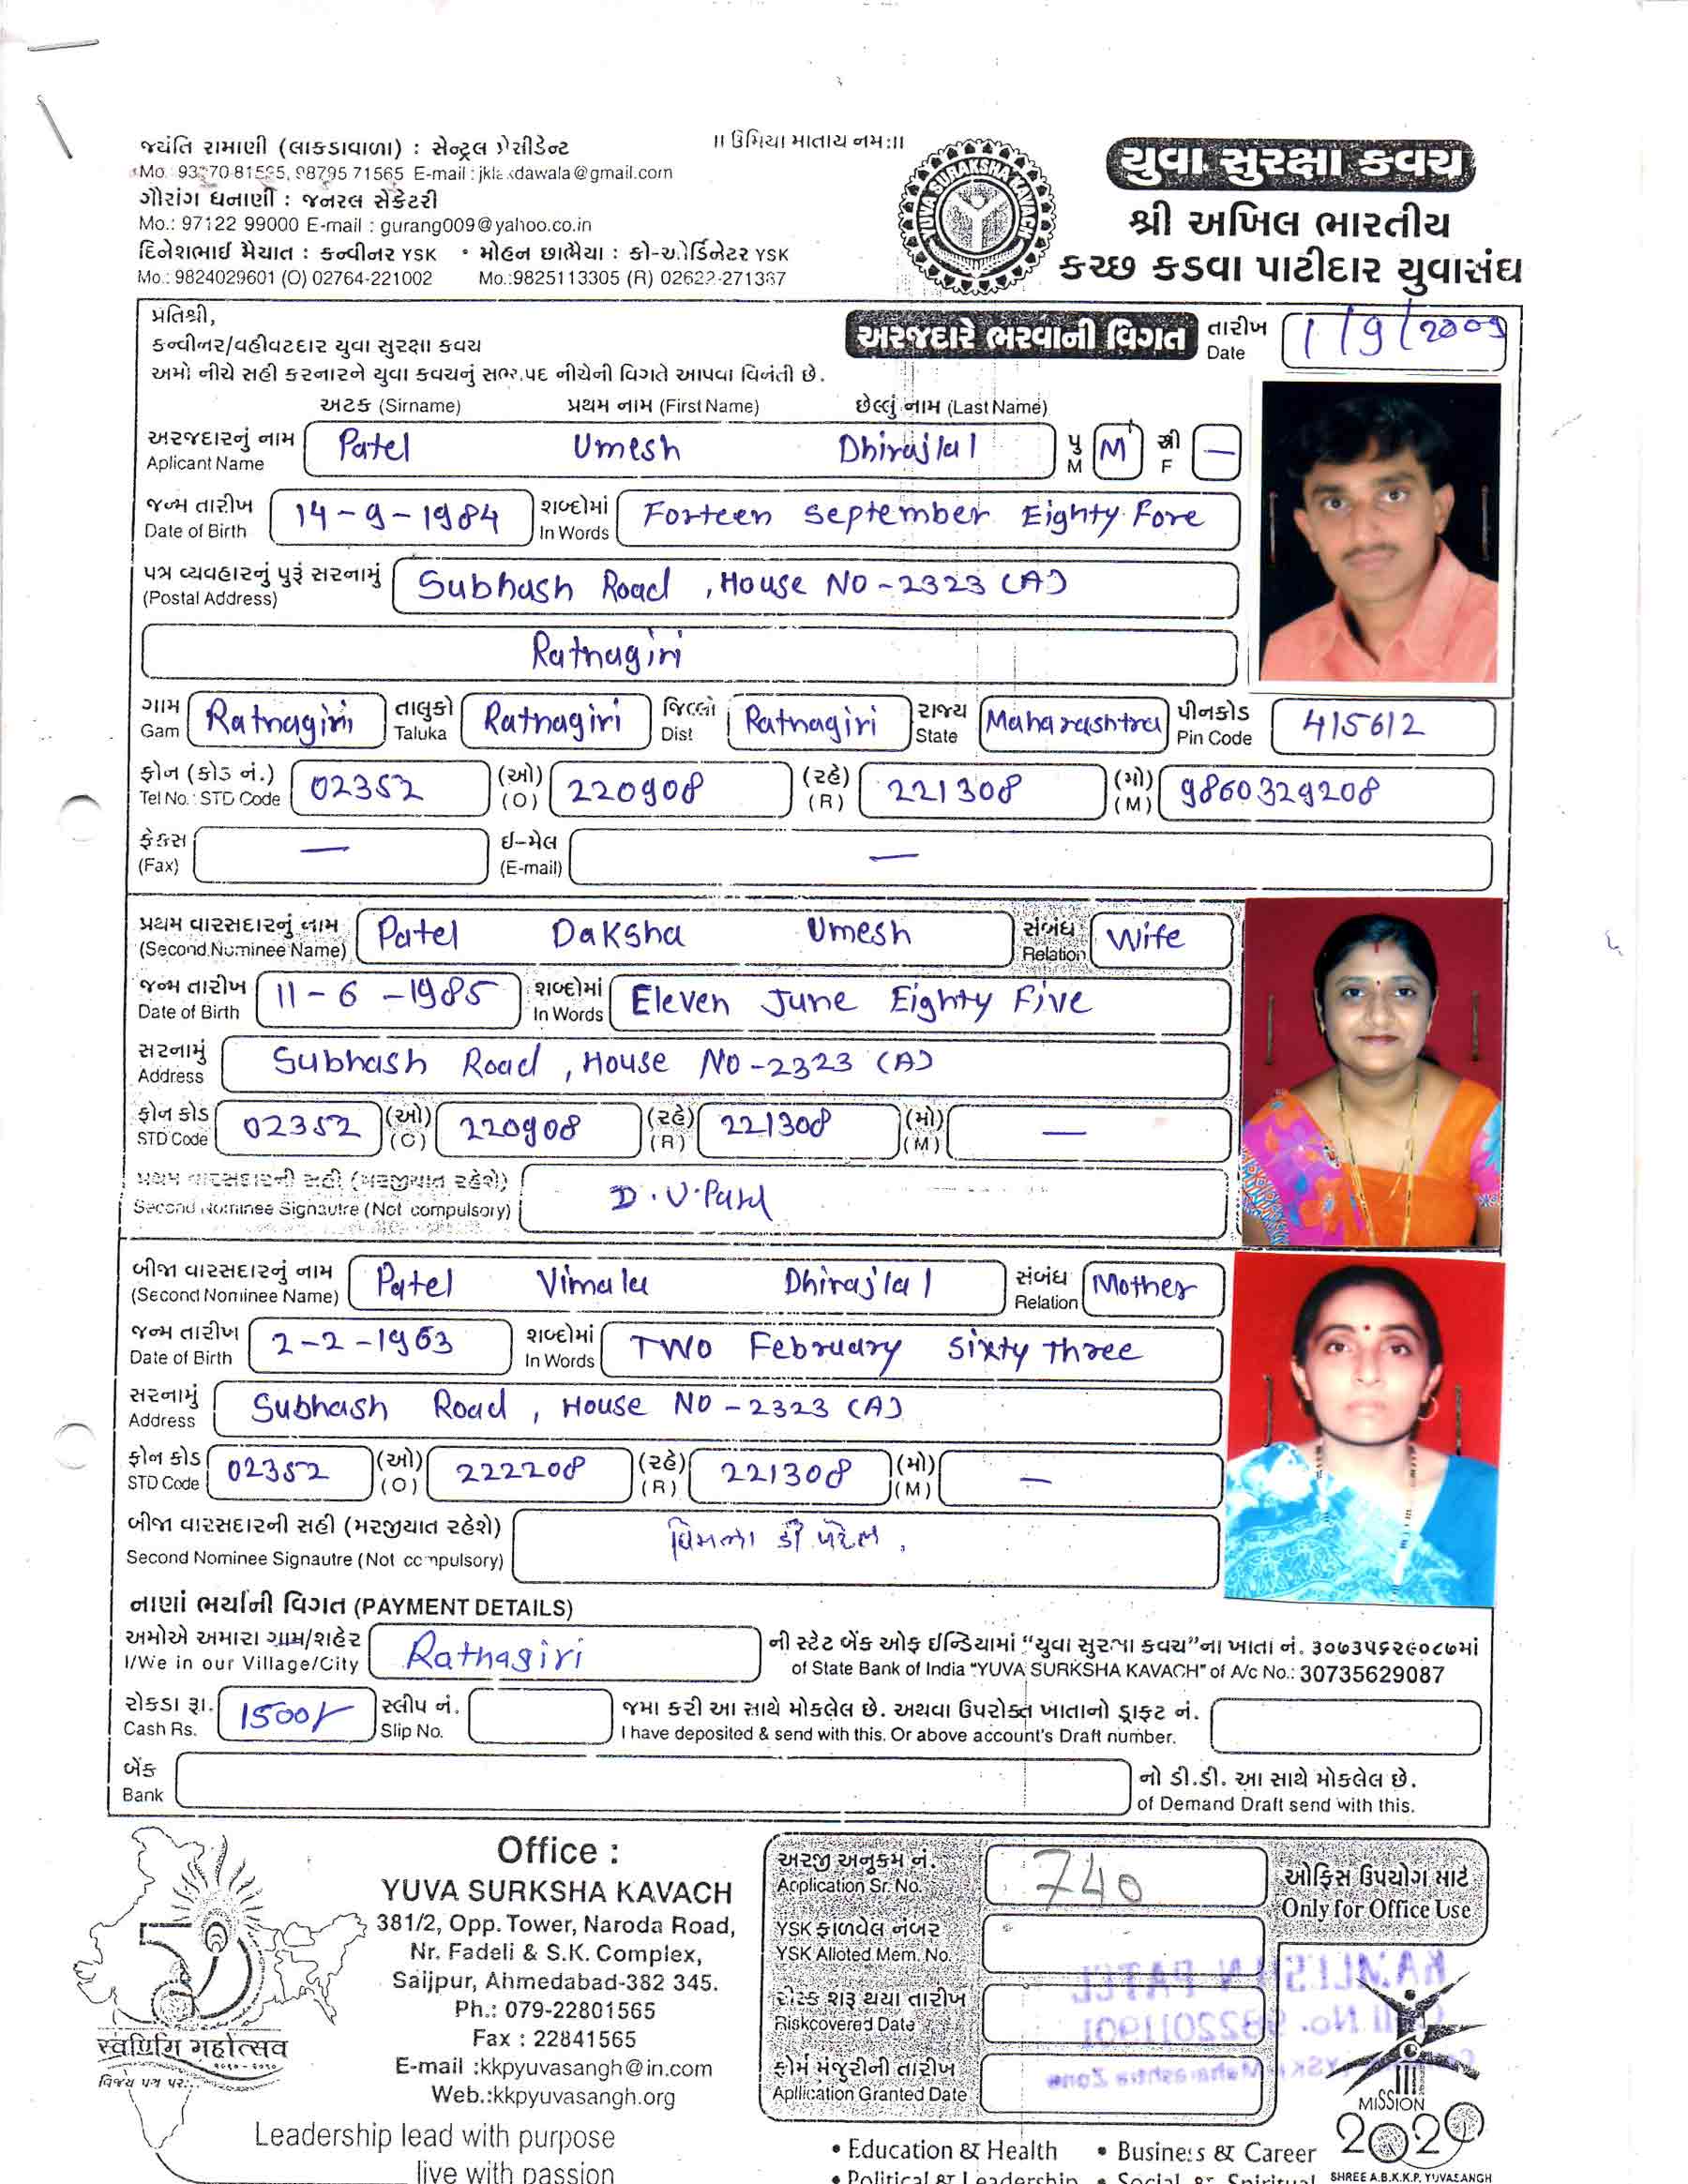 ॥ ઉમિયા માતાય નમઃ॥
જયંતિ રામાણી (લાકડાવાળા) : સેન્ટ્રલ પ્રેસીડેન્ટ
Mo. 98795 71565 E-mail :
ગૌરાંગ ધનાણી : જનરલ સેક્રેટરી
Mo.: 97122 99000 E-mail : gurang009@yahoo.co.in
દિનેશભાઈ મૈયાત : કન્વીનર YSK • મોહન છાભૈયા : કો-ઓર્ડિનેટર YSK
Mo.: 9824029601 (O) 02764-221002 Mo.:9825113305 (R) 02622-271367
YUVA SURAKSHA KAVACH
યુવા સુરક્ષા કવચ
શ્રી અખિલ ભારતીય
કચ્છ કડવા પાટીદાર યુવાસંઘ
પ્રતિશ્રી,
કન્વીનર/વહીવટદાર યુવા સુરક્ષા કવચ
અમો નીચે સહી કરનારને યુવા કવચનું સભ્યપદ નીચેની વિગતે આપવા વિનંતી છે.
અરજદારે ભરવાની વિગત
તારીખ
Date 1/9/2009
અટક (Sirname) પ્રથમ નામ (First Name) છેલ્લું નામ (Last Name)
અરજદારનું નામ
Aplicant Name Patel Umesh Dhirajlal પુ M M સ્ત્રી F —
જન્મ તારીખ
Date of Birth 14-9-1984 શબ્દોમાં In Words Forteen September Eighty Fore
પત્ર વ્યવહારનું પુરૂં સરનામું
(Postal Address) Subhash Road , House No - 2323 (A)
Ratnagiri
ગામ Gam Ratnagiri તાલુકો Taluka Ratnagiri જિલ્લો Dist Ratnagiri રાજ્ય State Maharashtra પીનકોડ Pin Code 415612
ફોન (કોડ નં.)
Tel No.: STD Code 02352 (ઓ) (O) 220908 (રહે) (R) 221308 (મો) (M) 9860329208
ફેકસ (Fax) — ઇ-મેલ (E-mail) —
પ્રથમ વારસદારનું નામ
(Second Nominee Name) Patel Daksha Umesh સંબંધ Relation Wife
જન્મ તારીખ
Date of Birth 11-6-1985 શબ્દોમાં In Words Eleven June Eighty Five
સરનામું
Address Subhash Road , House No - 2323 (A)
ફોન કોડ
STD Code 02352 (ઓ) (O) 220908 (રહે) (R) 221308 (મો) (M) —
પ્રથમ વારસદારની સહી (મરજીયાત રહેશે)
Second Nominee Signautre (Not compulsory) D.U.Patel
બીજા વારસદારનું નામ
(Second Nominee Name) Patel Vimala Dhirajlal સંબંધ Relation Mother
જન્મ તારીખ
Date of Birth 2-2-1963 શબ્દોમાં In Words Two February Sixty three
સરનામું
Address Subhash Road , House No - 2323 (A)
ફોન કોડ
STD Code 02352 (ઓ) (O) 222208 (રહે) (R) 221308 (મો) (M) —
બીજા વારસદારની સહી (મરજીયાત રહેશે)
Second Nominee Signautre (Not compulsory) વિમળા ડી પટેલ .
નાણાં ભર્યાની વિગત (PAYMENT DETAILS)
અમોએ અમારા ગામ/શહેર Ratnagiri ની સ્ટેટ બેંક ઓફ ઇન્ડિયામાં "યુવા સુરક્ષા કવચ"ના ખાતા નં. ૩૦૭૩૫૬૨૯૦૮૭માં
I/We in our Village/City of State Bank of India "YUVA SURKSHA KAVACH" of A/c No.: 30735629087
રોકડા રૂા. 1500/- સ્લીપ નં. જમા કરી આ સાથે મોકલેલ છે. અથવા ઉપરોક્ત ખાતાનો ડ્રાફ્ટ નં.
Cash Rs. Slip No. I have deposited & send with this. Or above account's Draft number.
બેંક નો ડી.ડી. આ સાથે મોકલેલ છે.
Bank of Demand Draft send with this.
સ્વર્ણિમ મહોત્સવ
વિજય પથ પર...
Office :
YUVA SURKSHA KAVACH
381/2, Opp. Tower, Naroda Road,
Nr. Fadeli & S.K. Complex,
Saijpur, Ahmedabad-382 345.
Ph.: 079-22801565
Fax : 22841565
E-mail :kkpyuvasangh@in.com
Web.:kkpyuvasangh.org
Leadership lead with purpose
live with passion
અરજી અનુક્રમ નં.
Application Sr. No. 740
YSK ફાળવેલ નંબર
YSK Alloted Mem. No.
રીસ્ક શરૂ થયા તારીખ
Riskcovered Date
ફોર્મ મંજુરીની તારીખ
Apllication Granted Date
ઓફિસ ઉપયોગ માટે
Only for Office Use
KAMLESH N PATEL
Cell No. 9822011901
YSK Maharashtra Zone
MISSION
2020
SHREE A.B.K.K.P. YUVASANGH
• Education & Health • Business & Career
• Political & Leadership • Social & Spiritual